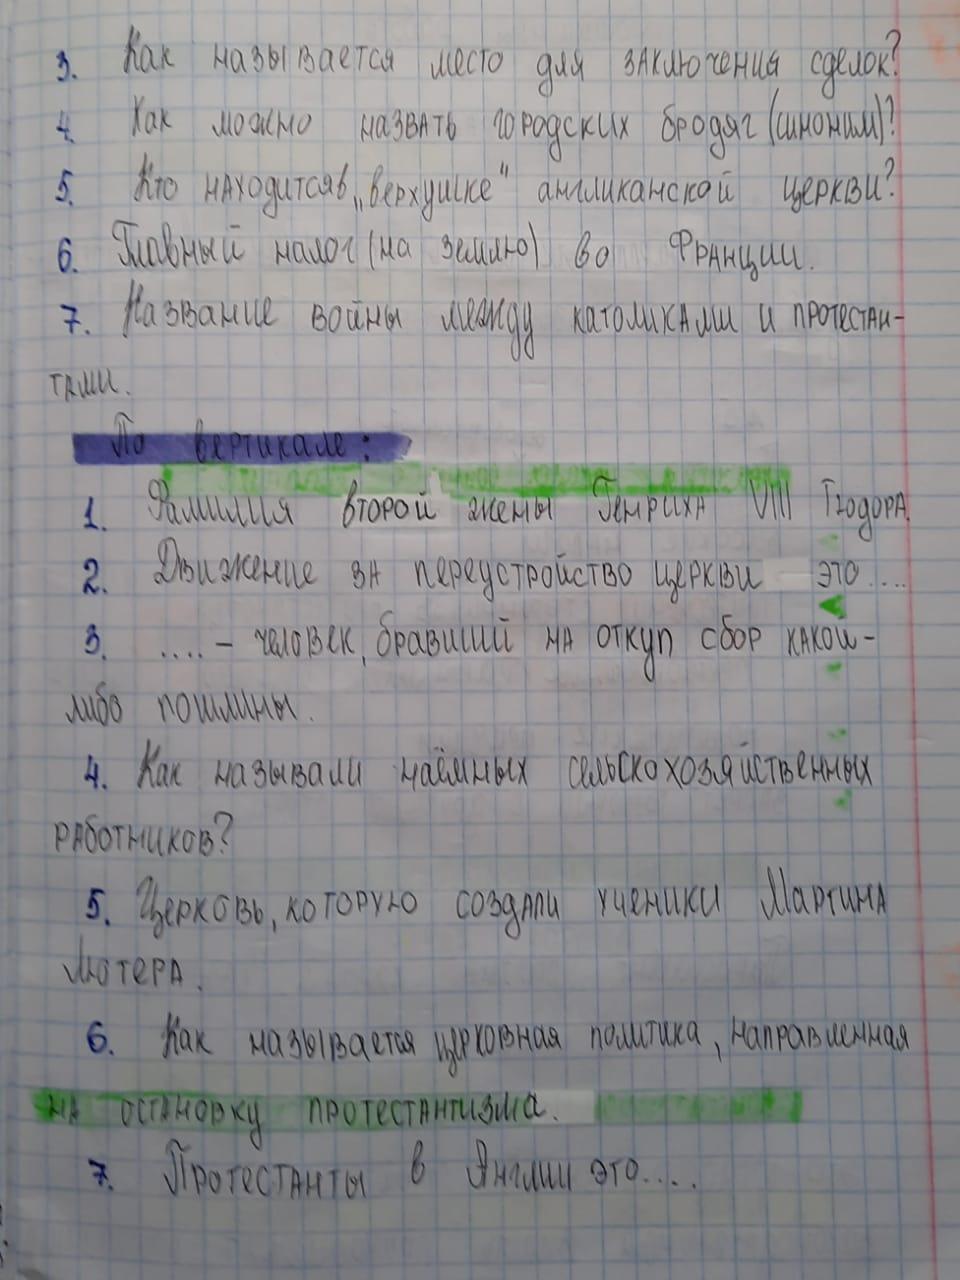 3. Как называется место для заключения сделок?
4. Как можно назвать городских бродяг (синоним)?
5. Кто находится в „верхушке“ англиканской церкви?
6. Главный налог (на землю) во Франции.
7. Название войны между католиками и протестан-
тами.
По вертикале:
1. Фамилия второй жены Генриха VIII Тюдора.
2. Движение за переустройство церкви это....
3. .... - человек, бравший на откуп сбор какой-
либо пошлины.
4. Как называли наёмных сельскохозяйственных
работников?
5. Церковь, которую создали ученики Мартина
Лютера.
6. Как называется церковная политика, направленная
на остановку протестантизма.
7. Протестанты в Англии это....